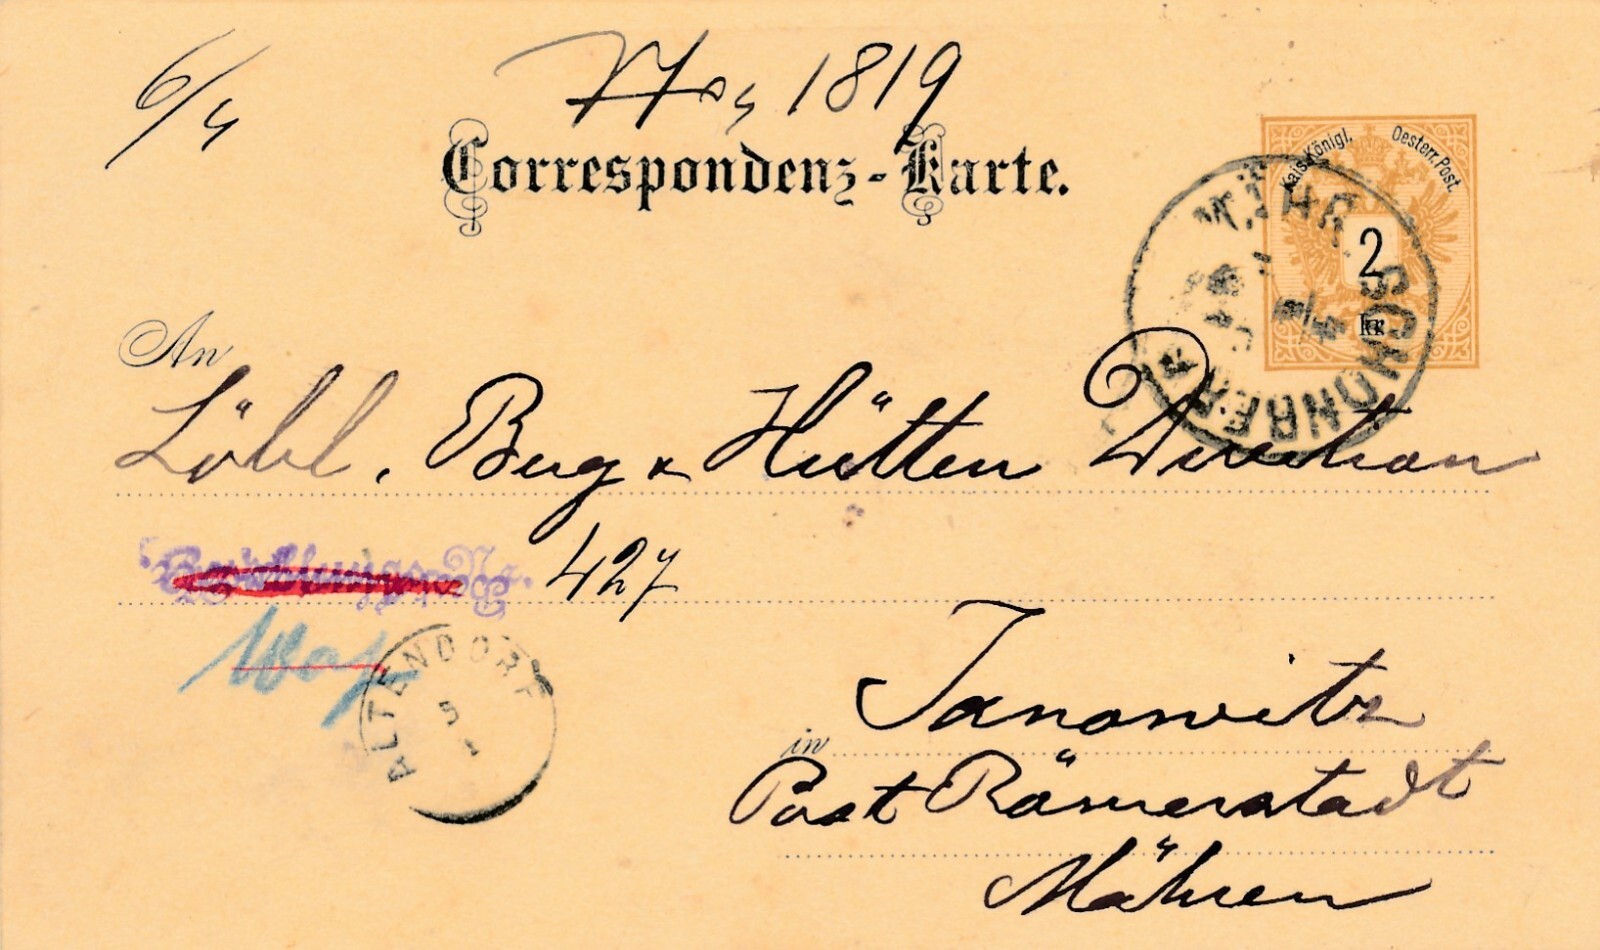 6/4
No, 1819
Correspondenz-Karte.
Kais. Königl. Oesterr. Post.
2
kr
MÄHR. SCHÖNBERG
An
Löbl. Berg & Hütten Direction
427
ALTENDORF
5
in Janowitz
Post Römerstadt
Mähren